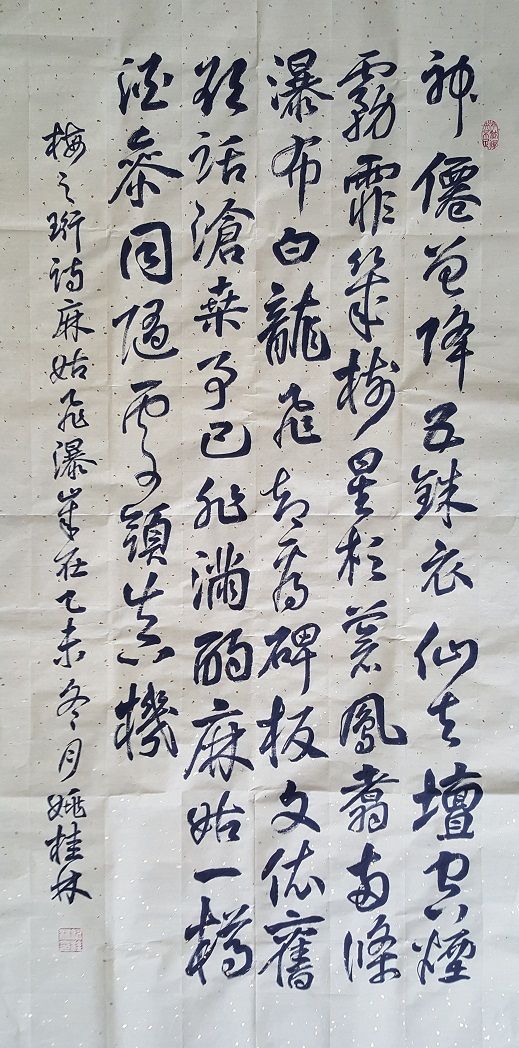 神僊曾降五銖衣仙去壇空煙
霧霏樹星杉蒼鳳翥兩條
瀑布白龍飛碑板文依舊
欲話滄桑事已非滿酌麻姑一樽
酒參同隨處領真機
梅之珩詩麻姑飛瀑歲在乙未冬月姚桂林